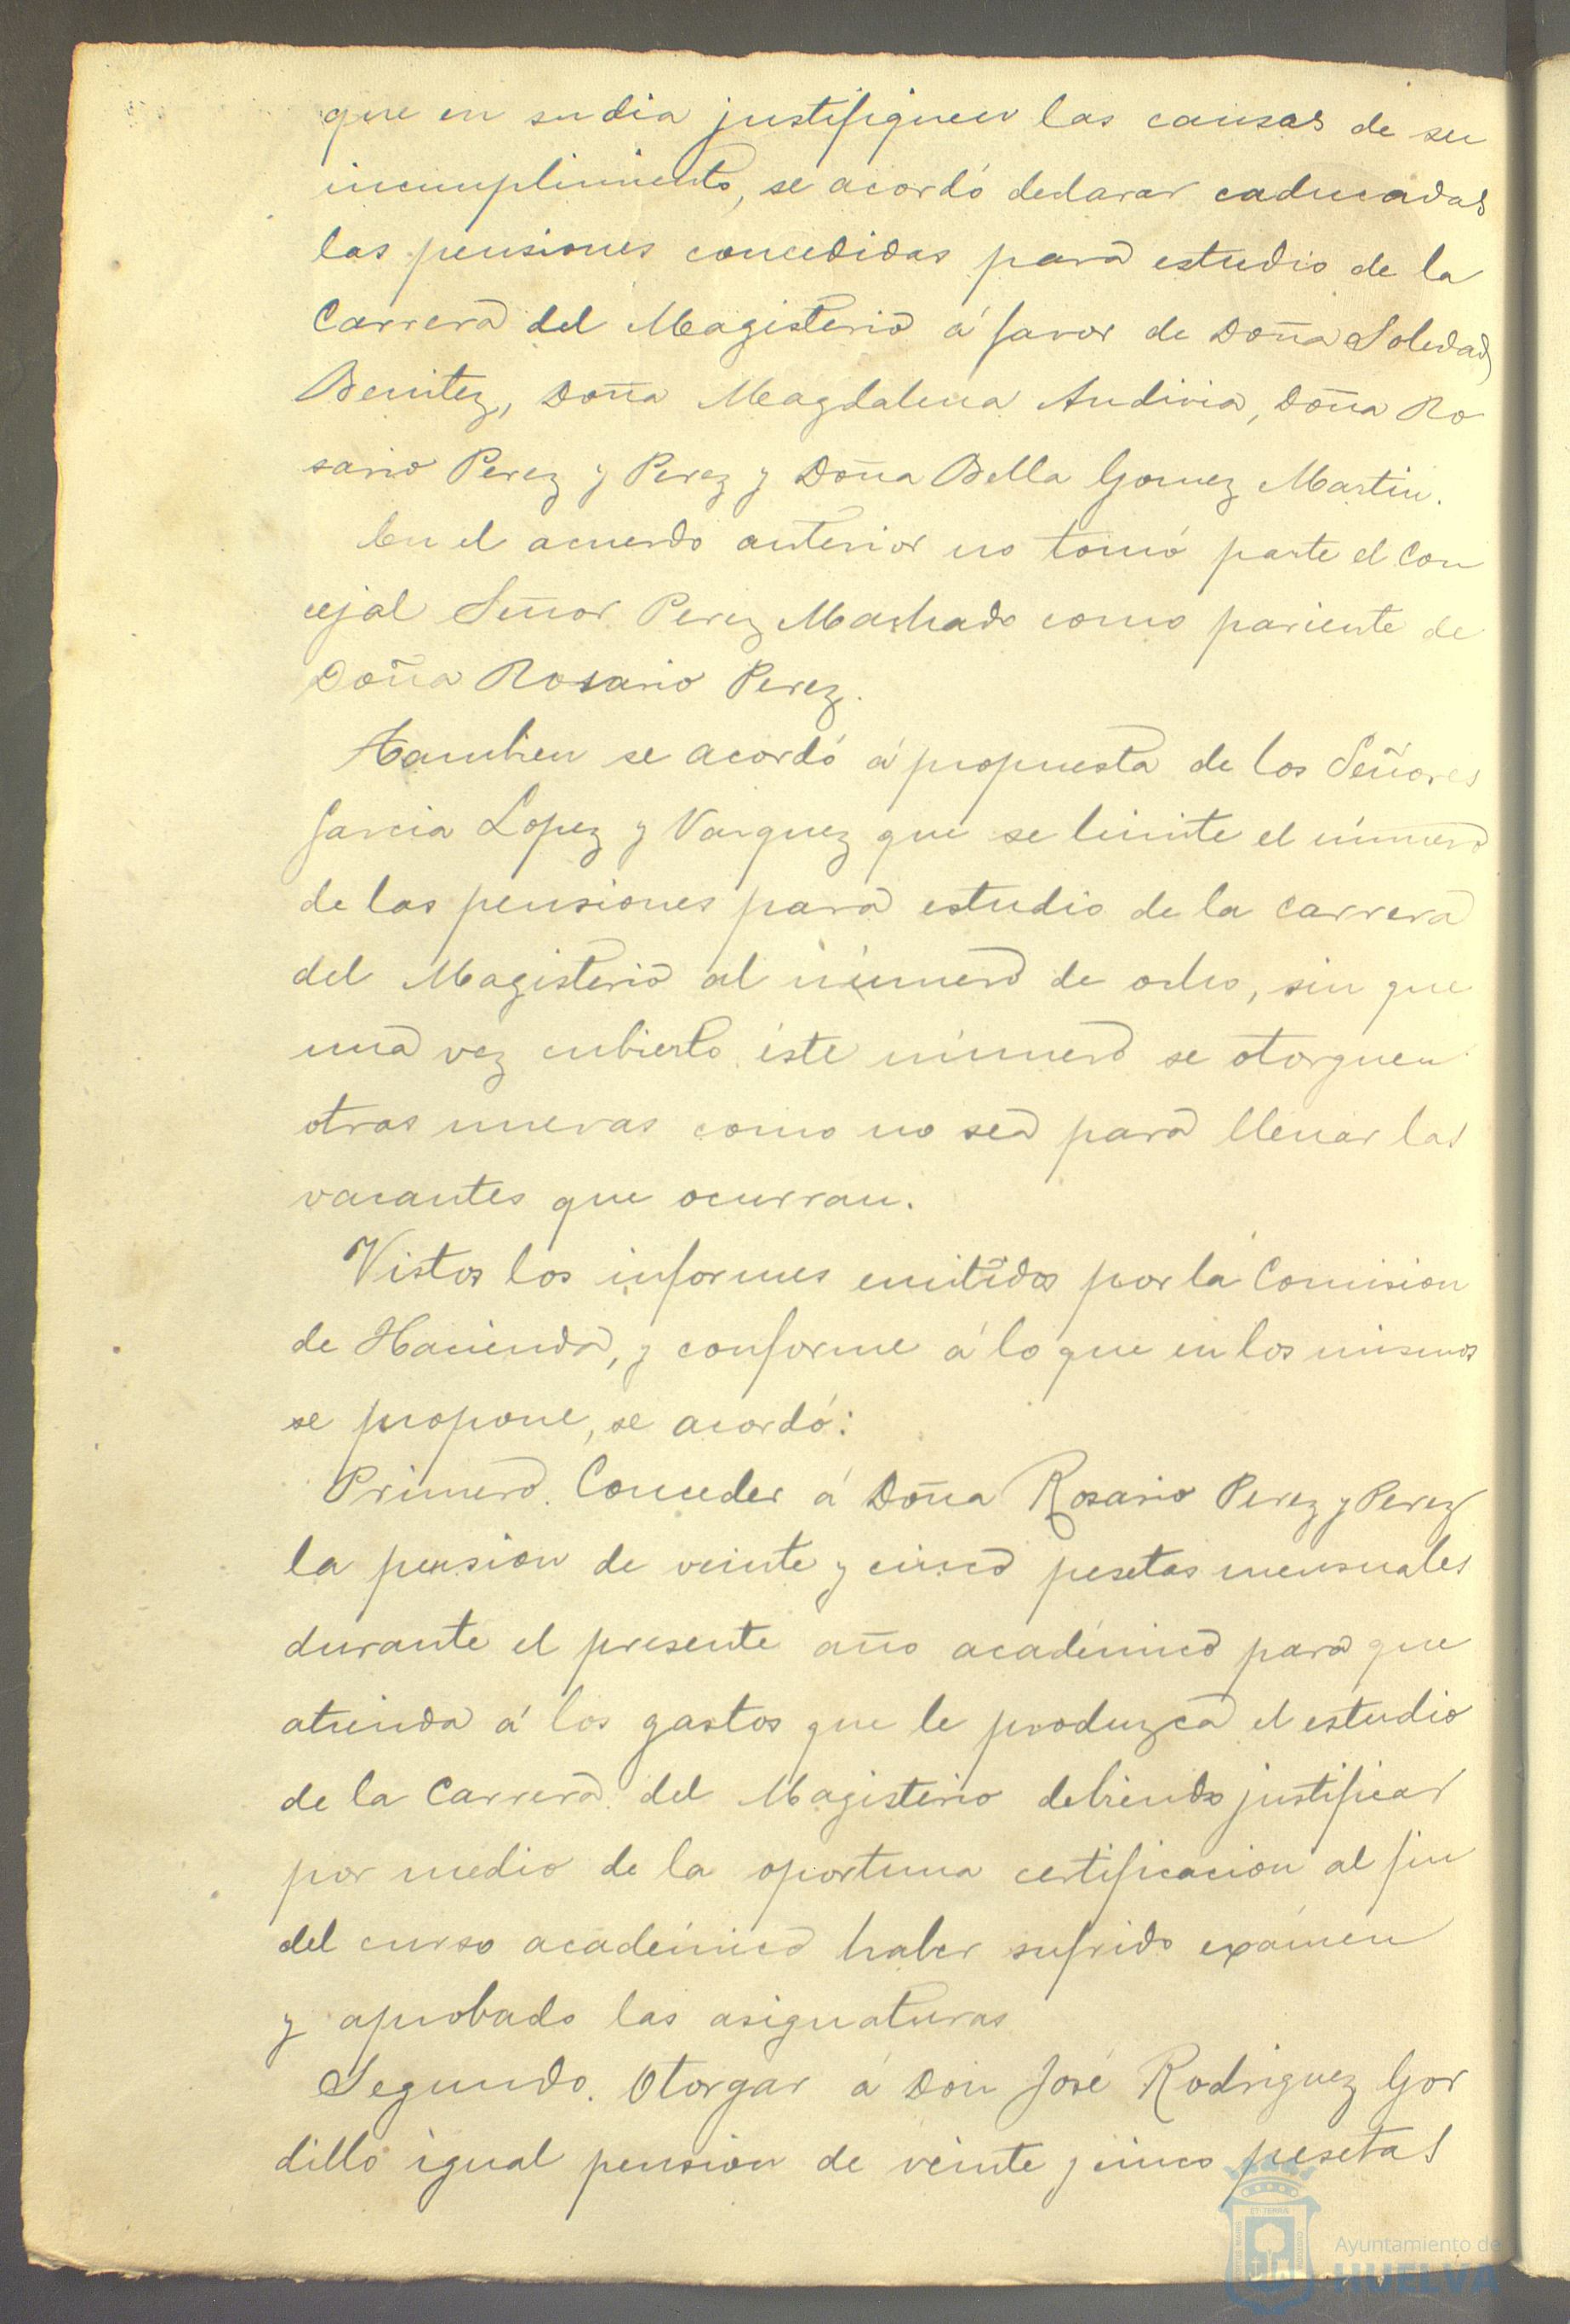 que en su dia justifiquen las causas de su
incumplimiento, se acordó declarar caducadas
las pensiones concedidas para estudio de la
Carrera del Magisterio á favor de Doña Soledad
Benitez, Doña Magdalena Andivia, Doña Ro
sario Perez y Perez y Doña Bella Gomez Martin.
En el acuerdo anterior no tomó parte el Con
cejal Señor Perez Machado como pariente de
Doña Rosario Perez.
Tambien se acordó á propuesta de los Señores
Garcia Lopez y Vazquez que se limite el número
de las pensiones para estudio de la carrera
del Magisterio al número de ocho, sin que
una vez cubierto éste número se otorguen
otras nuevas como no sea para llenar las
vacantes que ocurran.
Vistos los informes emitidos por la Comision
de Hacienda, y conforme á lo que en los mismos
se propone, se acordó:
Primero. Conceder á Doña Rosario Perez y Perez
la pension de veinte y cinco pesetas mensuales
durante el presente año académico para que
atienda á los gastos que le produzca el estudio
de la Carrera del Magisterio debiendo justificar
por medio de la oportuna certificacion al fin
del curso académico haber sufrido exámen
y aprobado las asignaturas
Segundo. Otorgar á Don José Rodriguez Gor
dillo igual pension de veinte y cinco pesetas
Ayuntamiento de
HUELVA